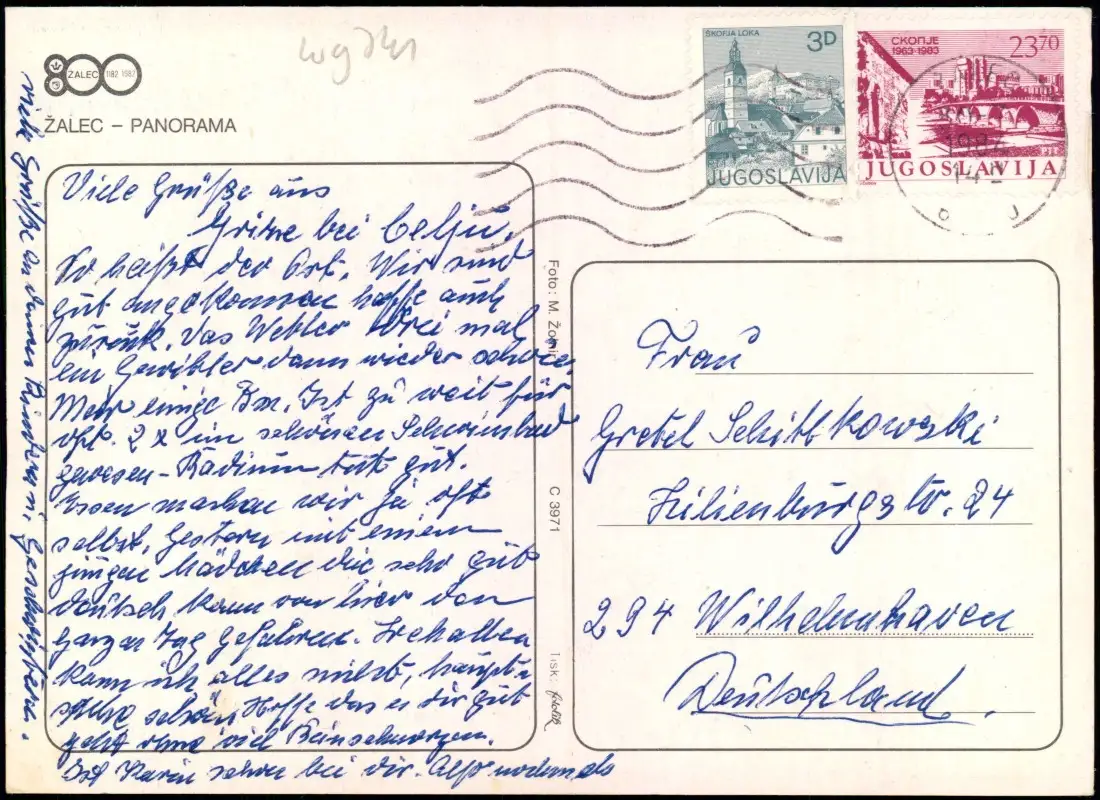 800
ŽALEC 1182 1982
ŽALEC – PANORAMA
ŠKOFJA LOKA
3D
JUGOSLAVIJA
СКОПЈЕ
1963-1983
23 70
JUGOSLAVIJA
Viele Grüße aus
Grize bei Celju.
So heißt der Ort. Wir sind
gut angekommen hoffe auch
zurück. Das Wetter drei mal
ein Gewitter dann wieder
Meer einige Km. Ist zu weit für
oft. 2 x im schönen Schwimbad
gewesen – Radium tut gut.
Essen machen wir ja oft
selbst, gestern mit einem
jungen Mädchen die sehr gut
deutsch kann von hier den
ganzen Tag gefahren.
kann ich alles nicht, haupt-
schön Hoffe das es dir gut
geht ohne viel Beinschmerzen.
Ist Karin schon bei dir. Also nochmals
viele Grüße an deinen Kindern
Foto: M.
C 3971
Tisk:
Frau
Gretel Schittkowski
Lilienburgstr. 24
294 Wilhelmhaven
Deutschland.